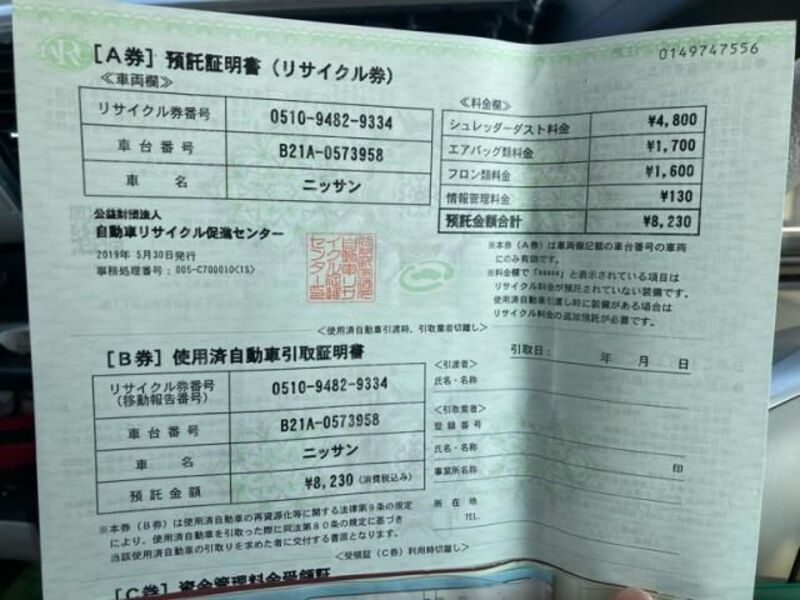 0149747556
[A券] 預託証明書 (リサイクル券)
≪車両欄≫
リサイクル券番号 0510-9482-9334
車台番号 B21A-0573958
車名 ニッサン
公益財団法人
自動車リサイクル促進センター
2019年 5月30日発行
事務処理番号:005-C700010<1S>
≪料金欄≫
シュレッダーダスト料金 ¥4,800
エアバッグ類料金 ¥1,700
フロン類料金 ¥1,600
情報管理料金 ¥130
預託金額合計 ¥8,230
※本券(A券)は車両欄記載の車台番号の車両
にのみ有効です。
※料金欄で「*****」と表示されている項目は
リサイクル料金が預託されていない装備です。
使用済自動車引渡し時に装備がある場合は
リサイクル料金の追加預託が必要です。
<使用済自動車引渡時、引取業者切離し>
[B券] 使用済自動車引取証明書
リサイクル券番号
(移動報告番号) 0510-9482-9334
車台番号 B21A-0573958
車名 ニッサン
預託金額 ¥8,230 (消費税込み)
※本券(B券)は使用済自動車の再資源化等に関する法律第9条の規定
により、使用済自動車を引取った際に同法第80条の規定に基づき
当該使用済自動車の引取りを求めた者に交付する書面となります。
引取日: 年 月 日
<引渡者>
氏名・名称
<引取業者>
登録番号
氏名・名称
印
事業所名称
所在地
TEL.
<受領証(C券)利用時切離し>
[C券] 資金管理料金受領証